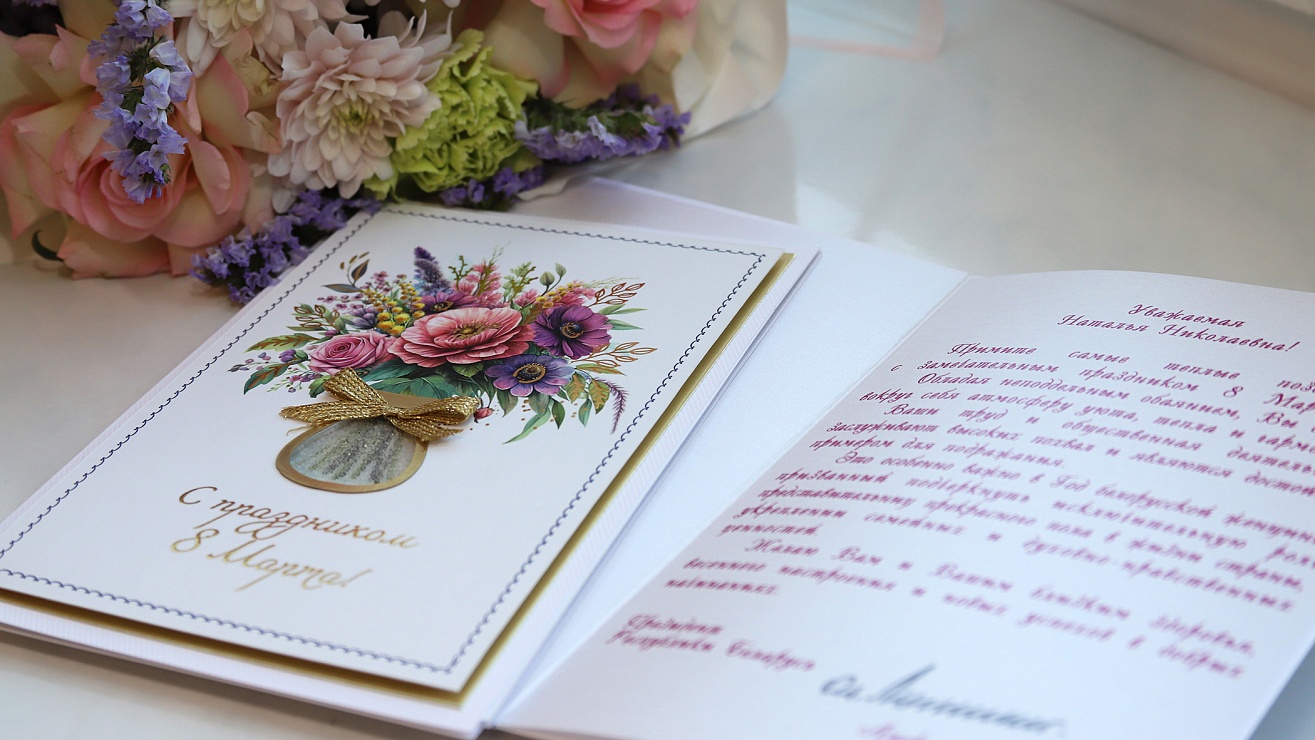 С праздником
8 Марта!
Уважаемая
Наталья Николаевна!
Примите самые теплые
с замечательным праздником 8
Обладая неподдельным обаянием, Вы
вокруг себя атмосферу уюта, тепла и
Ваши труд и общественная
заслуживают высоких похвал и являются
примером для подражания.
Это особенно важно в Год белорусской
призванный подчеркнуть исключительную
представительниц прекрасного пола в жизни страны,
укреплении семейных и духовно-нравственных
ценностей.
Желаю Вам и Вашим близким здоровья,
весеннего настроения и новых успехов в добрых
начинаниях.
Президент
Республики Беларусь